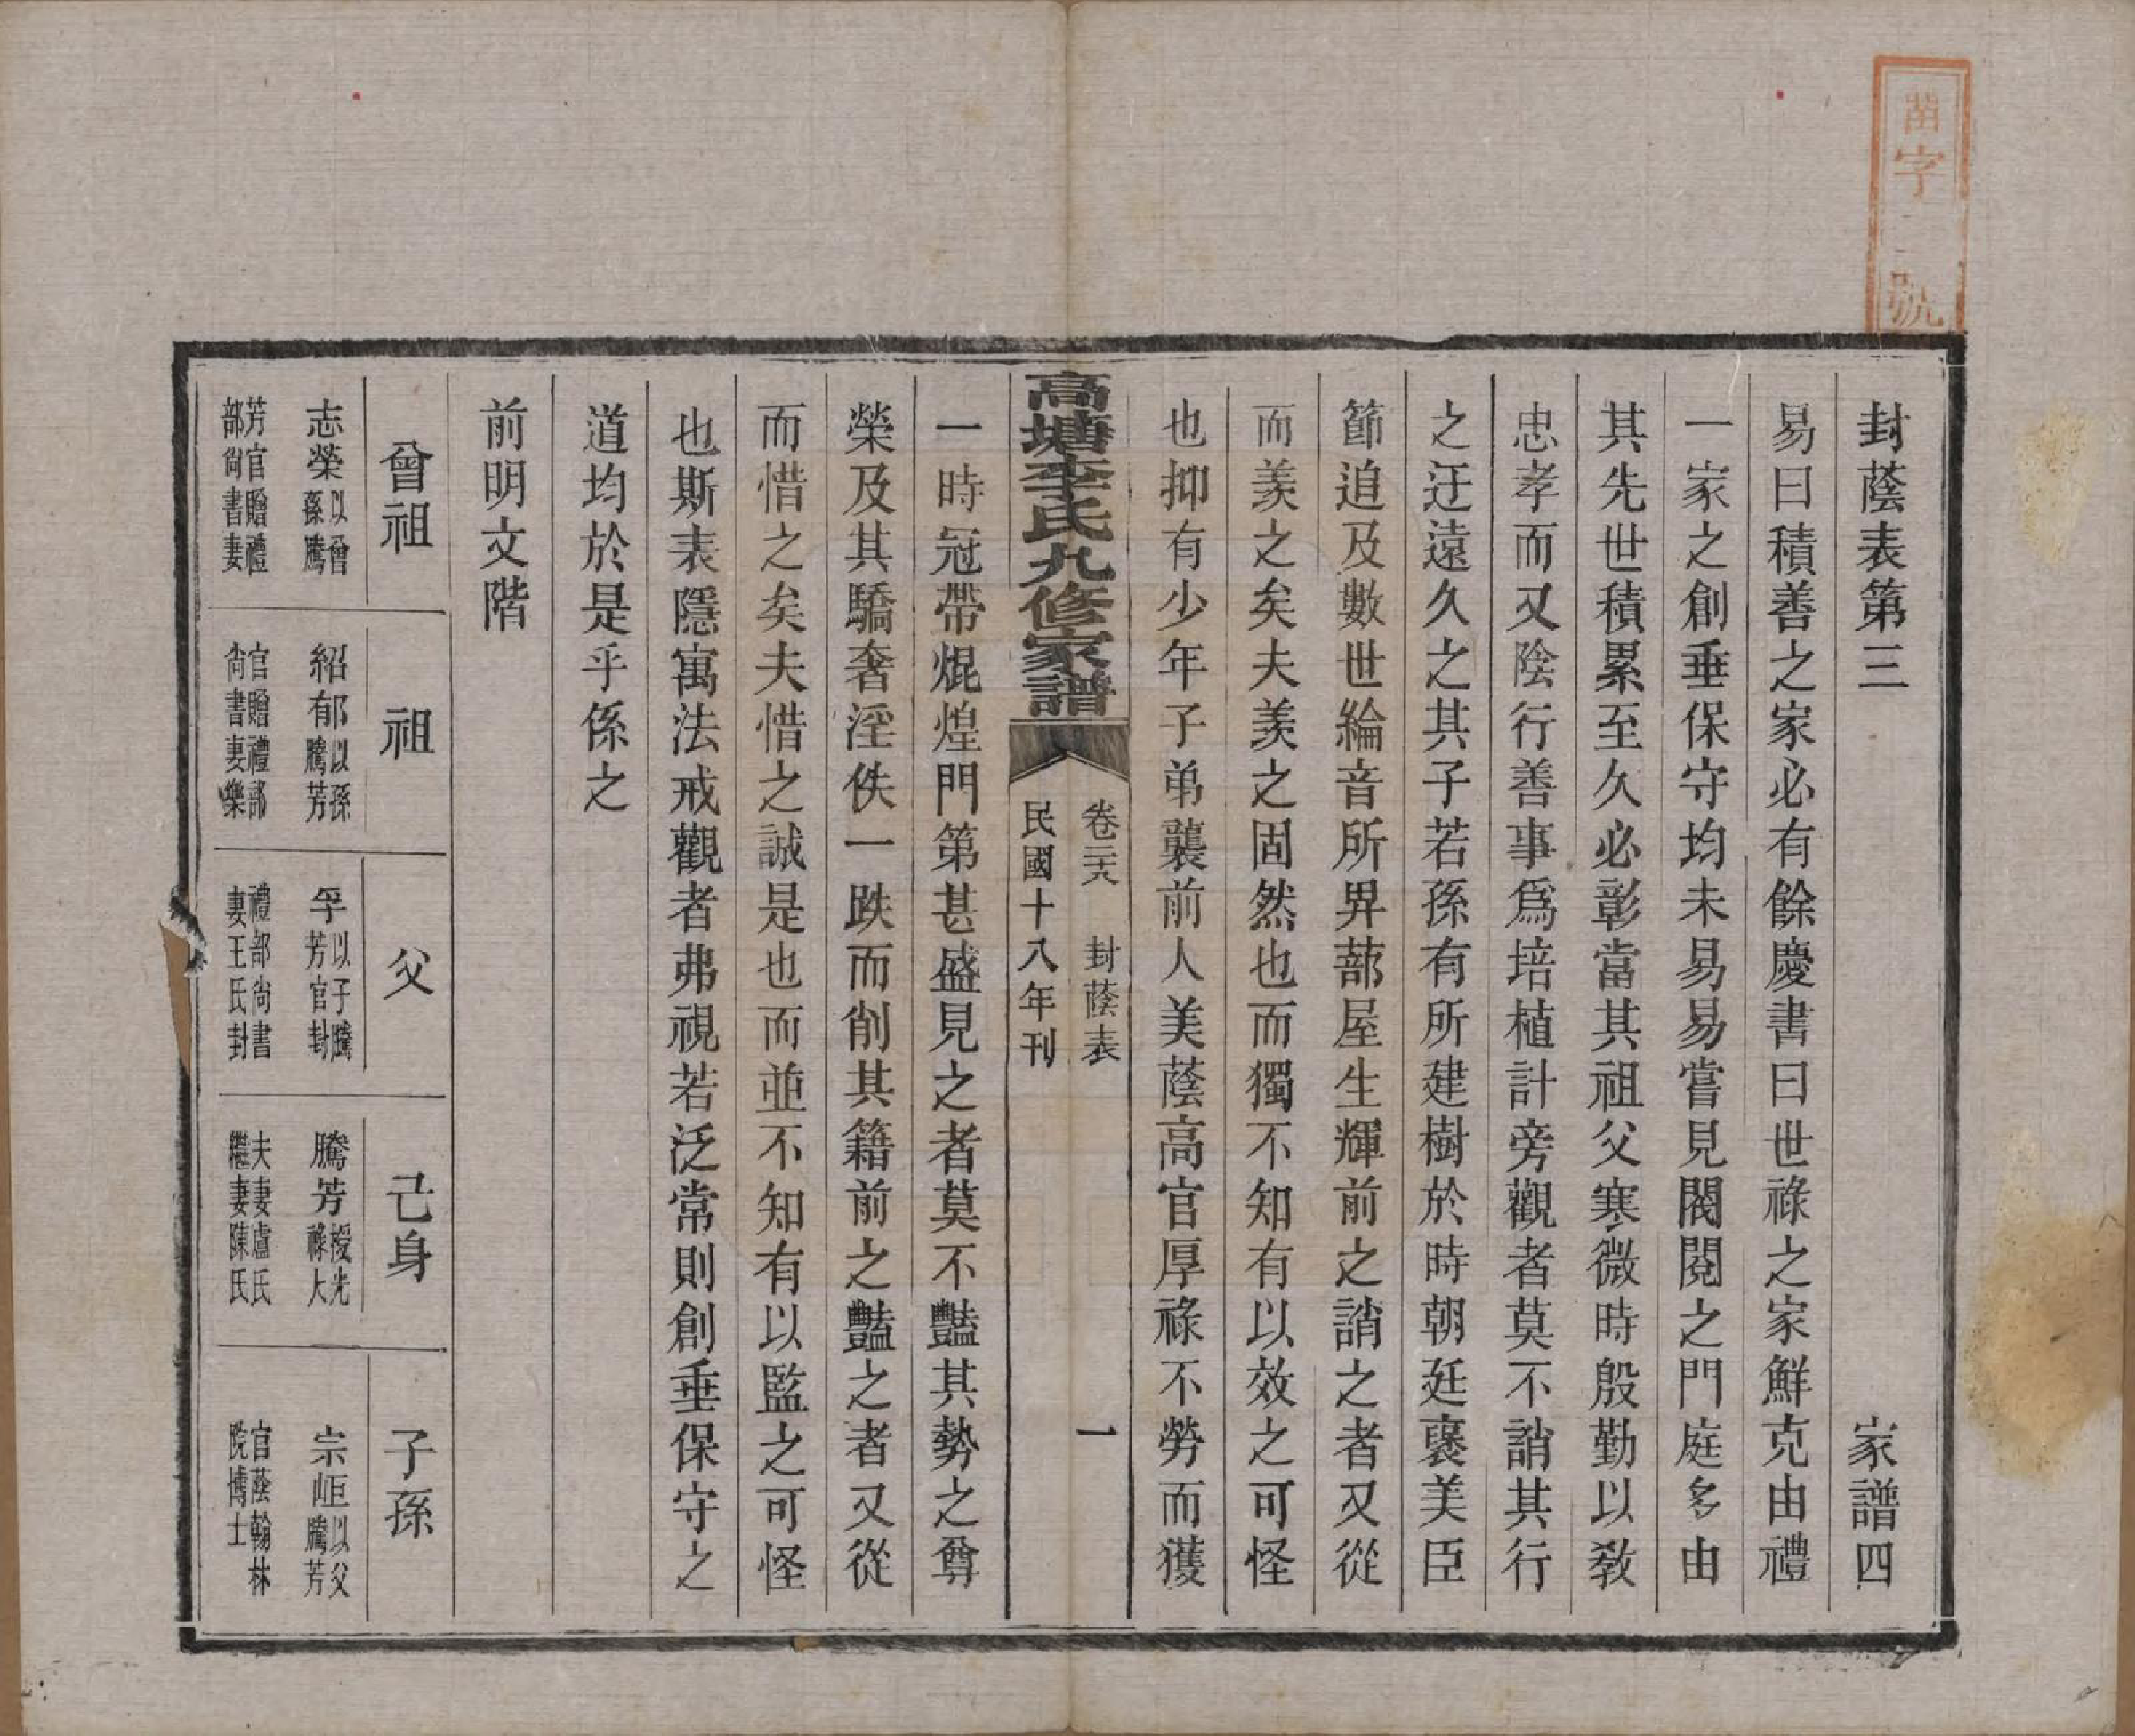 字
號
封蔭表第三 家譜四
易曰積善之家必有餘慶書曰世祿之家鮮克由禮
一家之創垂保守均未易易嘗見閥閱之門庭多由
其先世積累至久必彰當其祖父寒微時殷勤以敎
忠孝而又陰行善事爲培植計旁觀者莫不誚其行
之迂遠久之其子若孫有所建樹於時朝廷褒美臣
節迨及數世綸音所畀蔀屋生輝前之誚之者又從
而羨之矣夫羨之固然也而獨不知有以效之可怪
也抑有少年子弟襲前人美蔭高官厚祿不勞而獲
高塘李氏九修家譜
卷二六 封蔭表 一
民國十八年刊
一時冠帶焜煌門第甚盛見之者莫不豔其勢之尊
榮及其驕奢淫佚一跌而削其籍前之豔之者又從
而惜之矣夫惜之誠是也而並不知有以監之可怪
也斯表隱寓法戒觀者弗視若泛常則創垂保守之
道均於是乎係之
前明文階
曾祖 祖 父 己身 子孫
志榮以曾孫騰
芳官贈禮部尙書妻
紹郁以孫騰芳
官贈禮部尙書妻樂
孚以子騰芳官封
禮部尙書妻王氏封
騰芳授光祿大
夫妻盧氏繼妻陳氏
宗岠以父騰芳
官蔭翰林院博士